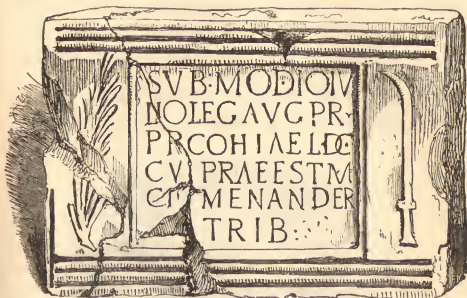 SVB·MODIOIV
LIOLEGAVGPR·
PRCOHIAEL·DC
CVI PRAEESTM
CL MENANDER
TRIB